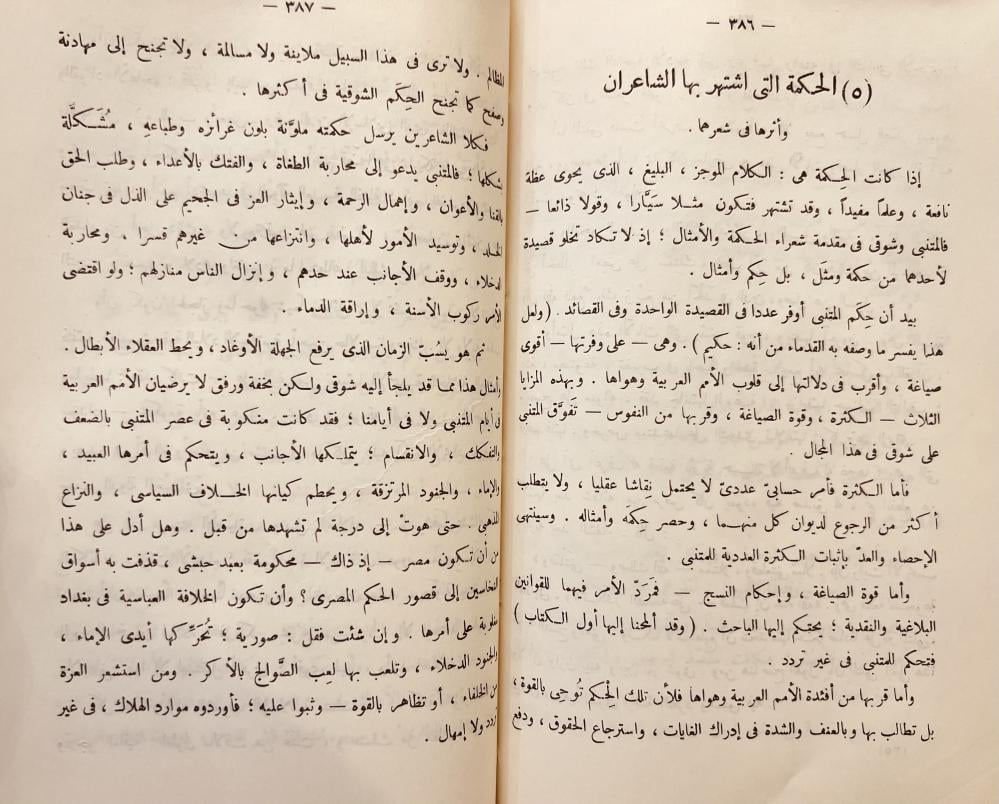 — ٣٨٦ —
(٥) الحكمة التى اشتهر بها الشاعران
وأثرها فى شعرهما .
إذا كانت الحِكمة هى : الكلام الموجز ، البليغ ، الذى يحوى عظة
نافعة ، وعلماً مفيداً ، وقد تشتهر فتكون مثلا سَيَّارا ، وقولا ذائعا —
فالمتنبى وشوقى فى مقدمة شعراء الحكمة والأمثال ؛ إذ لا تكاد تخلو قصيدة
لأحدهما من حكمة ومثَل ، بل حِكم وأمثال .
بيد أن حِكَم المتنبى أوفر عددا فى القصيدة الواحدة وفى القصائد . (ولعل
هذا يفسر ما وصفه به القدماء من أنه : حكيم) . وهى — على وفرتها — أقوى
صياغة ، وأقرب فى دلالتها إلى قلوب الأمم العربية وهواها . وبهذه المزايا
الثلاث — الكثرة ، وقوة الصياغة ، وقربها من النفوس — تَفوَّق المتنبى
على شوقى فى هذا المجال .
فأما الكثرة فأمر حسابىّ عددىّ لا يحتمل نِقاشا عقليا ، ولا يتطلب
أكثر من الرجوع لديوان كل منهما ، وحصر حِكمَه وأمثاله . وسينتهى
الإحصاء والعدّ بإثبات الكثرة العددية للمتنبى .
وأما قوة الصياغة ، وإحكام النسج — فمَرَدّ الأمر فيهما للقوانين
البلاغية والنقدية ؛ يحتكم إليها الباحث . (وقد ألمحنا إليها أول الكتاب)
فتحكم للمتنبى فى غير تردد .
وأما قربها من أفئدة الأمم العربية وهواها فلأن تلك الحِكم تُوحِى بالقوة ،
بل تطالب بها وبالعنف والشدة فى إدراك الغايات ، واسترجاع الحقوق ، ودفع
— ٣٨٧ —
المظالم . ولا ترى فى هذا السبيل ملاينة ولا مسالمة ، ولا تجنح إلى مهادنة
وصفح كما تجنح الحِكَم الشوقية فى أكثرها .
فكلا الشاعرين يرسل حكمته ملوَّنة بلون غرائزه وطباعه ، مُشَكلَّة
بشكلها ؛ فالمتنبى يدعو إلى محاربة الطغاة ، والفتك بالأعداء ، وطلب الحق
بالقنا والأعوان ، وإهمال الرحمة ، وإيثار العز فى الجحيم على الذل فى جنان
الخلد ، وتوسيد الأمور لأهلها ، وانتزاعها من غيرهم قسرا ، ومحاربة
الدخلاء ، ووقف الأجانب عند حدهم ، وإنزال الناس منازلهم ؛ ولو اقتضى
الأمر ركوب الأسنة ، وإراقة الدماء .
ثم هو يسُبّ الزمان الذى يرفع الجهلة الأوغاد ، ويحط العقلاء الأبطال .
وأمثال هذا مما قد يلجأ إليه شوقى ولكن بخفة ورفق لا يرضيان الأمم العربية
فى أيام المتنبى ولا فى أيامنا ؛ فقد كانت منكوبة فى عصر المتنبى بالضعف
والتفكك ، والانقسام ؛ يتملكها الأجانب ، ويتحكم فى أمرها العبيد ،
والإماء ، والجنود المرتزقة ، ويحطم كيانها الخلاف السياسى ، والنزاع
المذهبى . حتى هوتْ إلى درجة لم تشهدها من قبل . وهل أدل على هذا
من أن تكون مصر — إذ ذاك — محكومة بعبد حبشى ، قذفت به أسواق
النخاسين إلى قصور الحكم المصرى ؟ وأن تكون الخلافة العباسية فى بغداد
مغلوبة على أمرها . وإن شئت فقل : صورية ؛ تُحَرِّكها أيدى الإماء ،
والجنود الدخلاء ، وتلعب بها لعِب الصَّوالج بالأكر . ومن استشعر العزة
من الخلفاء ، أو تظاهر بالقوة — وثبوا عليه ؛ فأوردوه موارد الهلاك ، فى غير
تردد ولا إمهال .